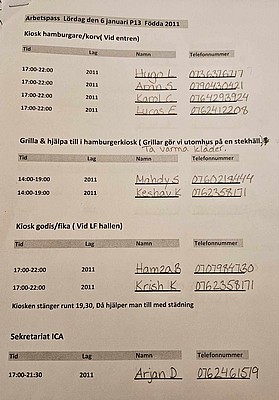 Arbetspass Lördag den 6 januari P13 Födda 2011
Kiosk hamburgare/korv( Vid entren)
Tid Lag Namn Telefonnummer
17:00-22:00 2011 Hugo L 0736376217
17:00-22:00 2011 Aran S 0790430421
17:00-22:00 2011 Karol G 0764293924
17:00-22:00 2011 Lucas E 0762412208
Grilla & hjälpa till i hamburgerkiosk ( Grillar gör vi utomhus på en stekhäll,
Ta varma kläder.
Tid Lag Namn Telefonnummer
14:00-19:00 2011 Mahdy S 0760219444
14:00-19:00 2011 Keshav K 0762358171
Kiosk godis/fika ( Vid LF hallen)
Tid Lag Namn Telefonnummer
17:00-22:00 2011 Hamza B 0707984730
17:00-22:00 2011 Krish K 0762358171
Kiosken stänger runt 19,30, Då hjälper man till med städning
Sekretariat ICA
Tid Lag Namn Telefonnummer
17:00-21:30 2011 Arjan D 0762461519